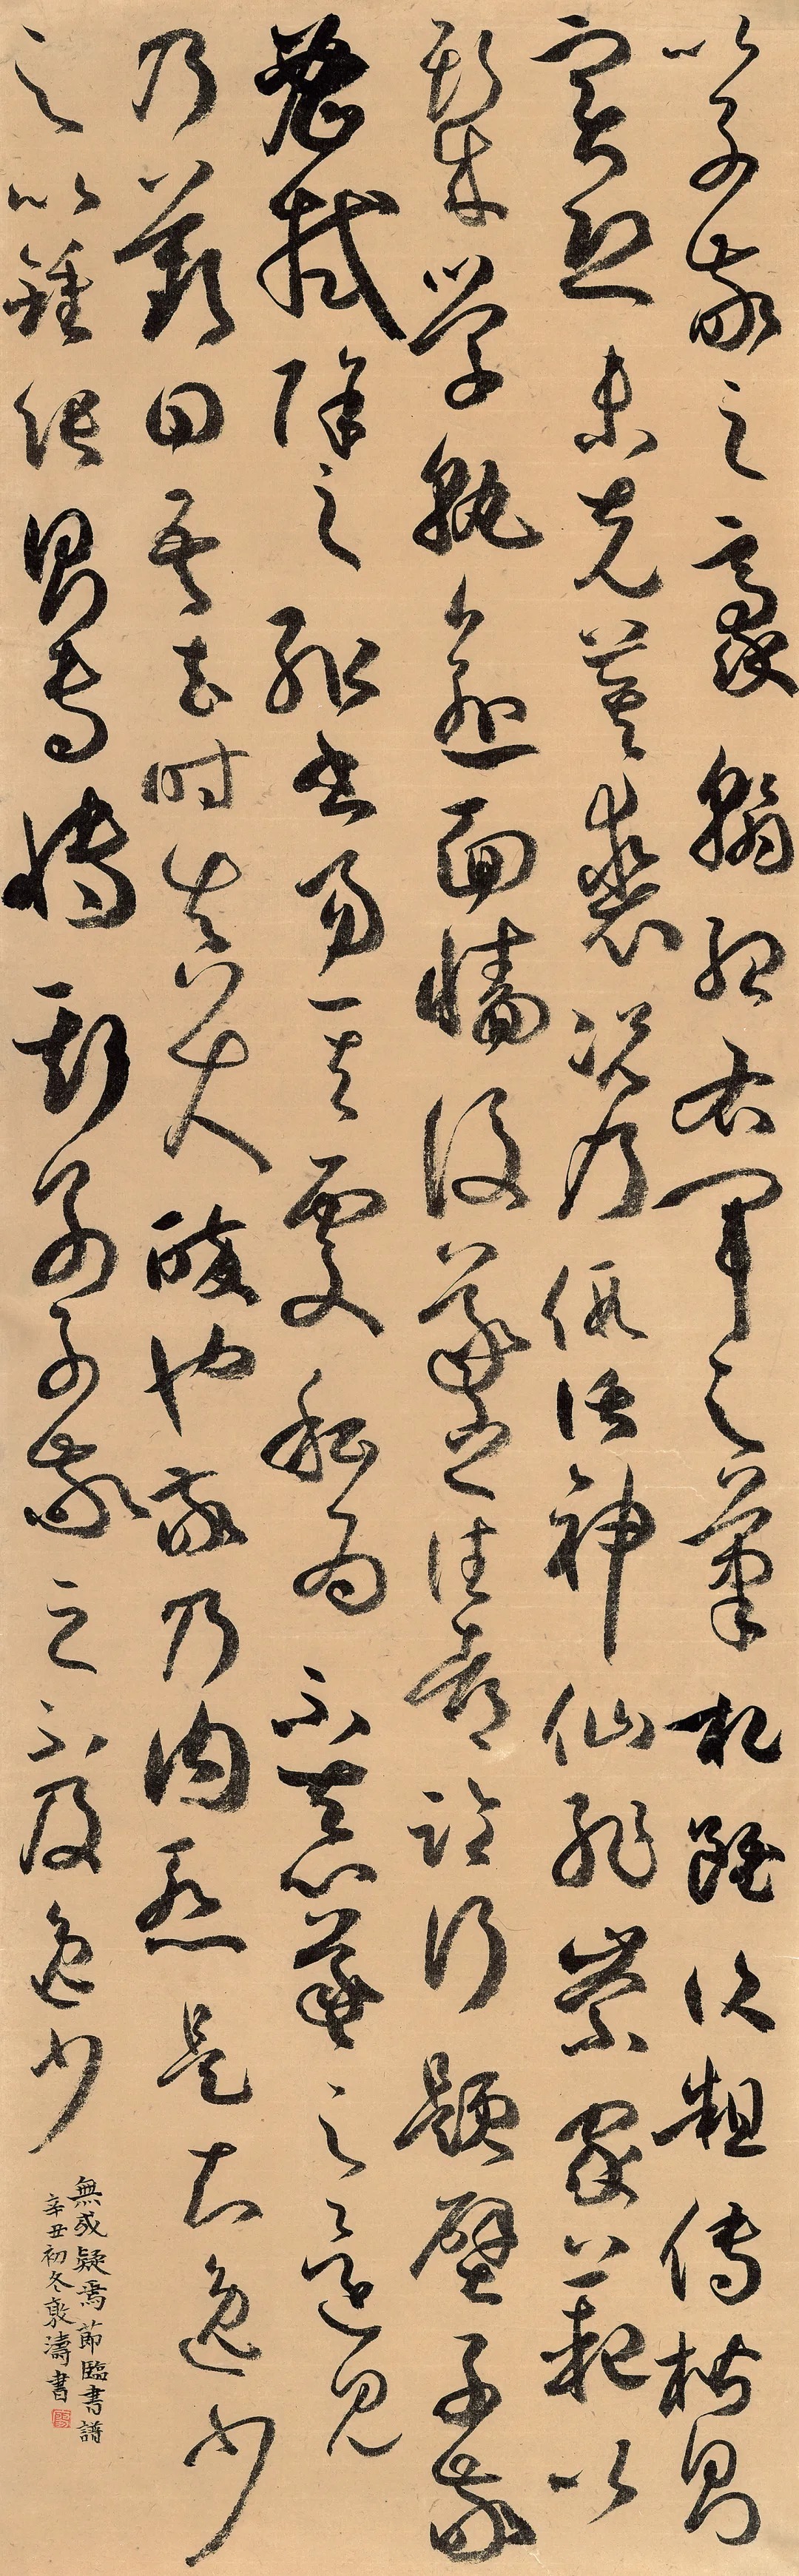 以子敬之豪翰紹右軍之筆札雖復粗傳楷則
實恐未克箕裘況乃假託神仙恥崇家範以
斯成學孰愈面牆後羲之往都臨行題壁子敬
密拭除之輒書易其處私為不惡羲之還見
乃歎曰吾去時真大醉也敬乃內慙是知逸少
之比鍾張則專博斯別子敬之不及逸少
無或疑焉節臨書譜
辛丑初冬敦濤書